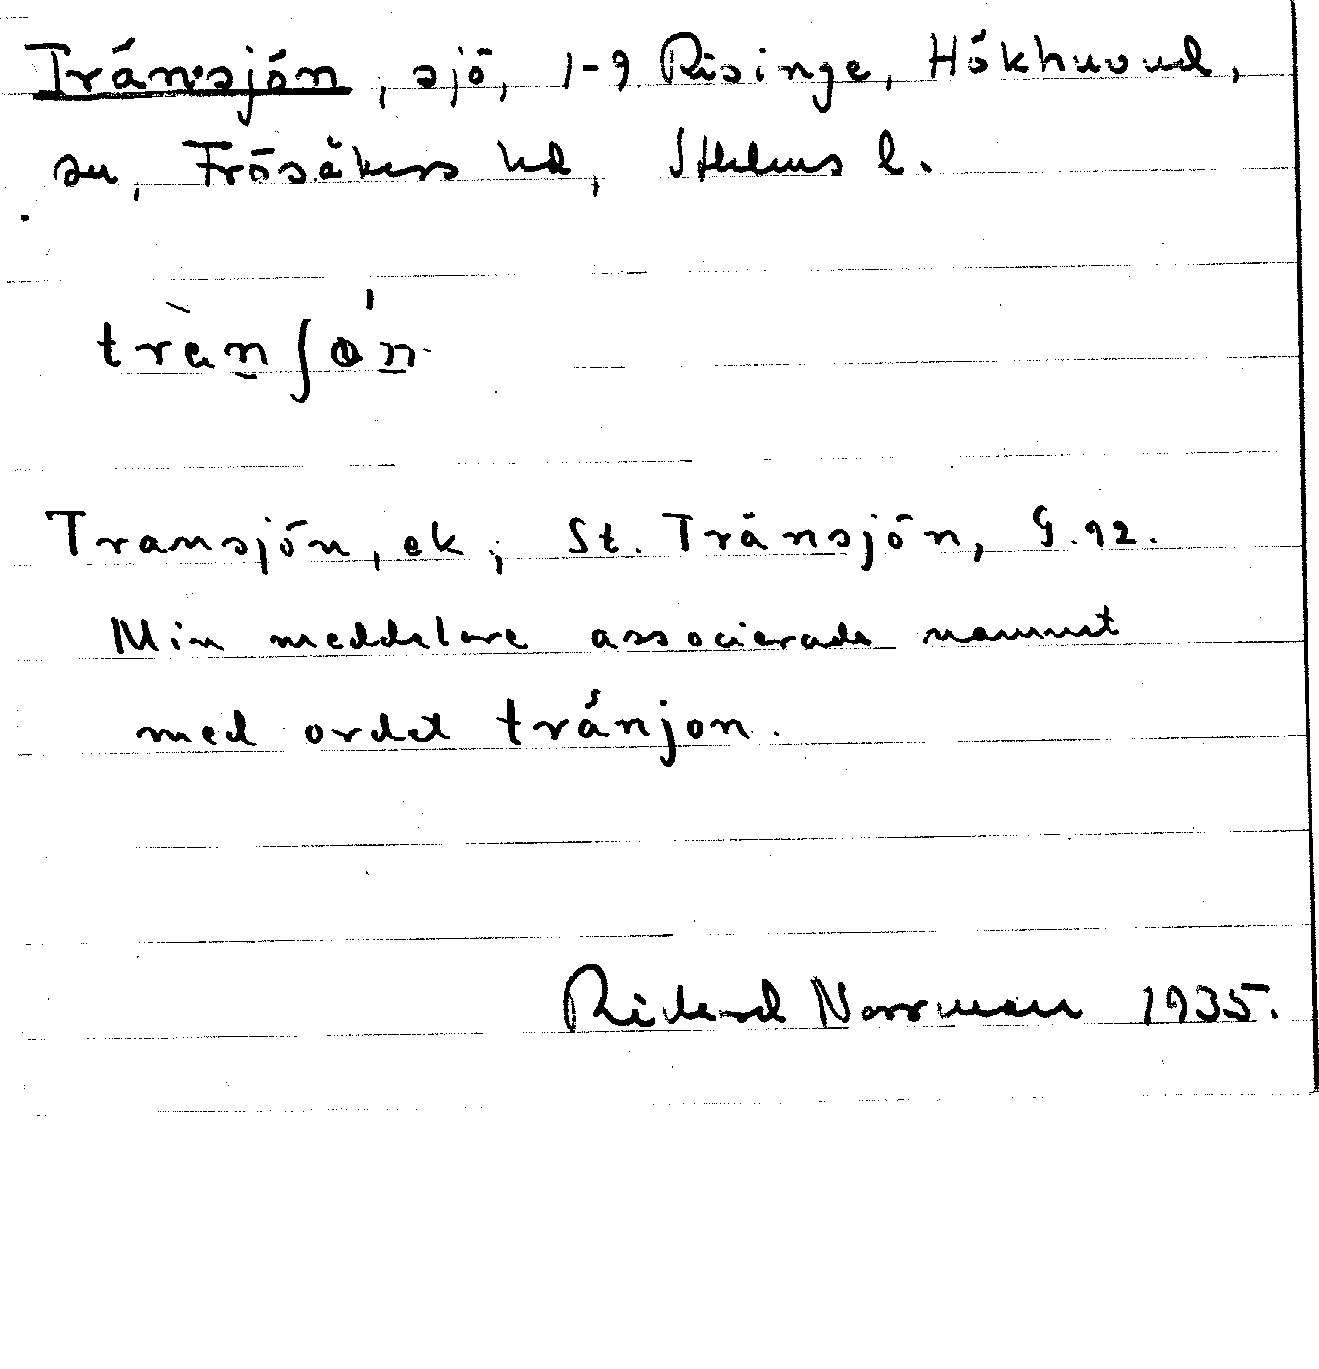 Tränsjön, sjö, 1-9 Risinge, Hökhuvud,
sn, Frösåkers hd, Sthlms l.
trànʃớn
Transjön, ek; St. Tränsjön, G.92.
Min meddelare associerade namnet
med ordet tránjon.
Rickard Norrman 1935.